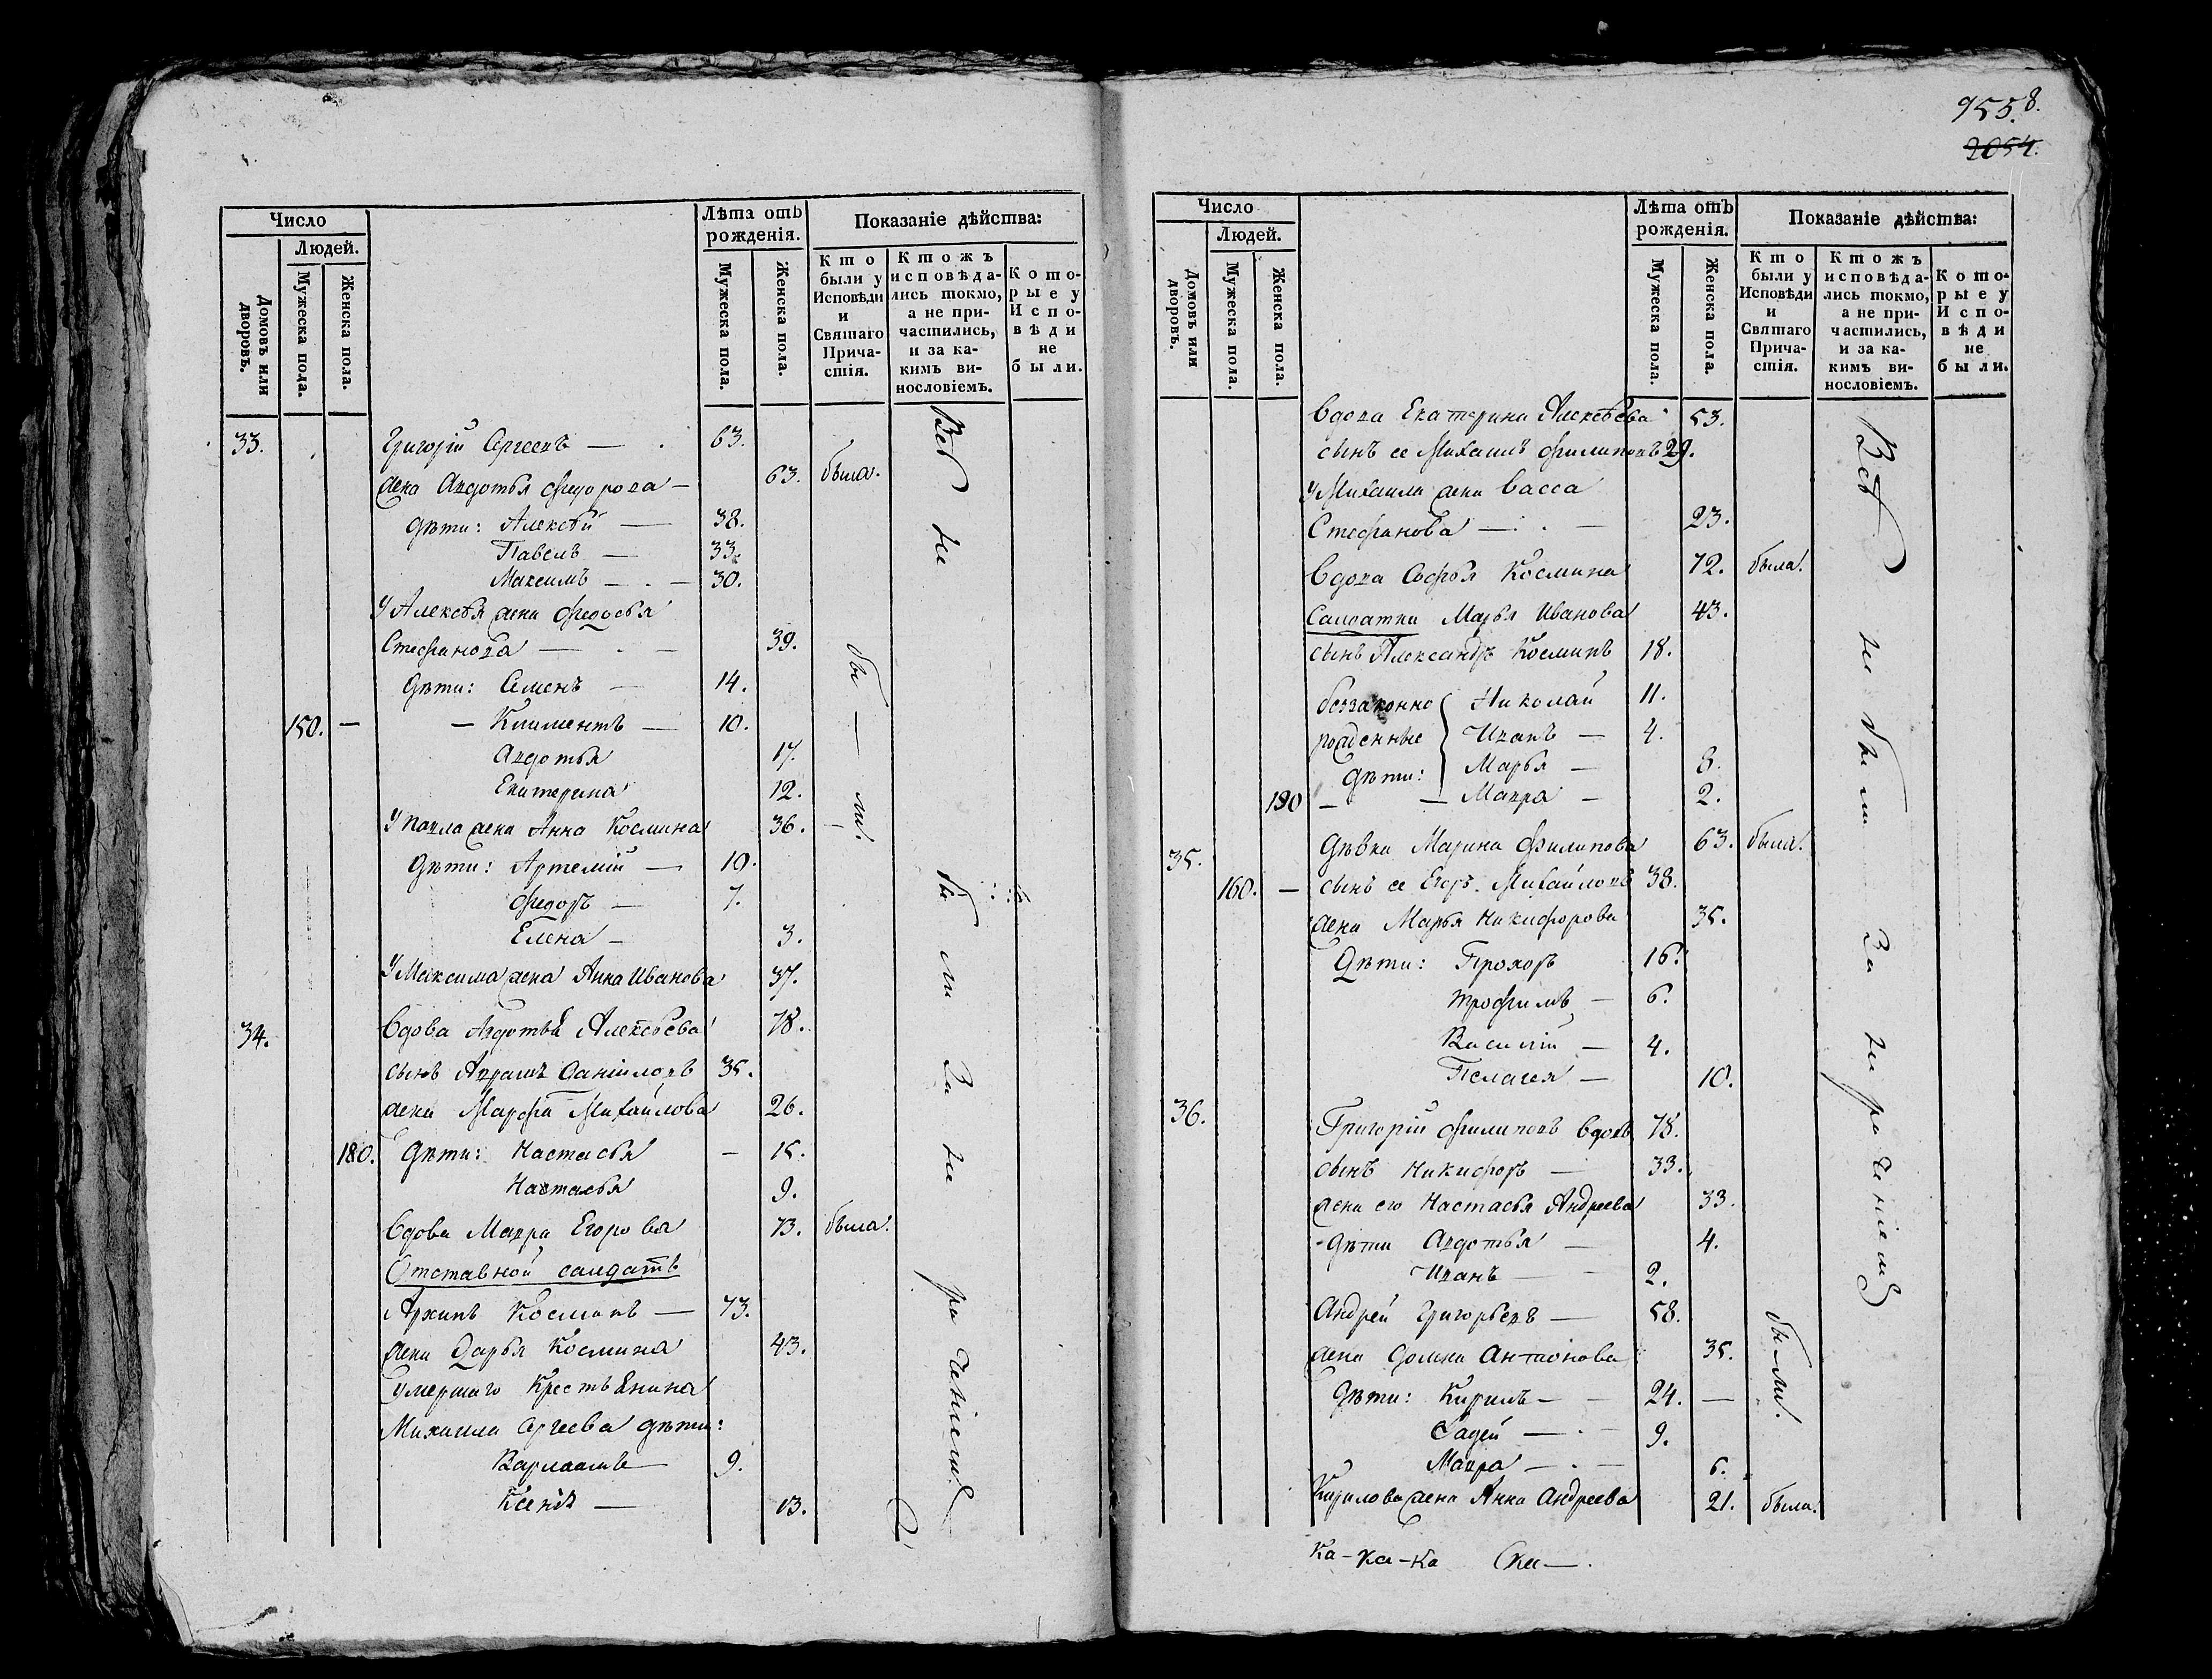 955. 8.
2054.
Число
Людей.
Домовъ или дворовъ.
Мужеска пола.
Женска пола.
Лѣта отъ рожденія.
Мужеска пола.
Женска пола.
Показаніе дѣйства:
Кто были у Исповѣди и Святаго Причастія.
Ктожъ исповѣдались токмо, а не причастились, и за какимъ винословіемъ.
Которые у Исповѣди не были.
33. Григорій Сергеевъ — 63.
жена Авдотья Федорова — 63. была.
дѣти: Алексѣй — 38.
Павелъ — 33.
Максимъ — 30.
У Алексѣя жена Федосья
Стефанова — 39.
дѣти: Семенъ — 14.
150. — — Климентъ — 10.
Авдотья 17.
Екатерина 12.
У Павла жена Анна Космина 36.
дѣти: Артемій — 10.
Федоръ — 7.
Елена — 3.
У Максима жена Анна Иванова 37.
34. Вдова Авдотья Алексѣева 78.
сынъ Аврамъ Даніиловъ 35.
жена Марфа Михайлова 26.
180. дѣти: Настасья — 15.
Настасья 9.
Вдова Мавра Егорова 73. была.
Отставной салдатъ
Архипъ Косминъ — 73.
жена Дарья Космина 43.
умершаго крестьянина
Михаила Сергеева дѣти:
Варлаамъ 9.
Ксенія — 13.
бы — ли.
Всѣ не были за нераченіемъ
Число
Людей.
Домовъ или дворовъ.
Мужеска пола.
Женска пола.
Лѣта отъ рожденія.
Мужеска пола.
Женска пола.
Показаніе дѣйства:
Кто были у Исповѣди и Святаго Причастія.
Ктожъ исповѣдались токмо, а не причастились, и за какимъ винословіемъ.
Которые у Исповѣди не были.
Вдова Екатерина Алексѣева 53.
сынъ ее Михаилъ Филиповъ 29.
У Михаила жена Васса
Стефанова — 23.
Вдова Софья Космина 72. была.
Салдатка Марья Иванова 43.
сынъ Александръ Косминъ 18.
беззаконно Николай 11.
рожденные Иванъ — 4.
дѣти: Марья — 8.
190 — — Мавра — 2.
35. Дѣвка Марина Филипова 63. была.
160. — сынъ ее Егоръ Михайловъ 38.
жена Марья Никифорова 35.
Дѣти: Прохоръ 16.
Трофимъ — 6.
Василій — 4.
Пелагея — 10.
36. Григорій Филиповъ вдовъ 78.
сынъ Никифоръ — 33.
жена его Настасья Андреева 33.
дѣти Авдотья — 4.
Иванъ — 2.
Андрей Григорьевъ — 58.
жена Домна Антонова 35.
дѣти: Кирилъ — 24. —
Фадей — 9.
Мавра — 6.
Кирилова жена Анна Андреева 21. была.
бы-ли.
Всѣ не были за нераченіемъ
Ка-ка-ка